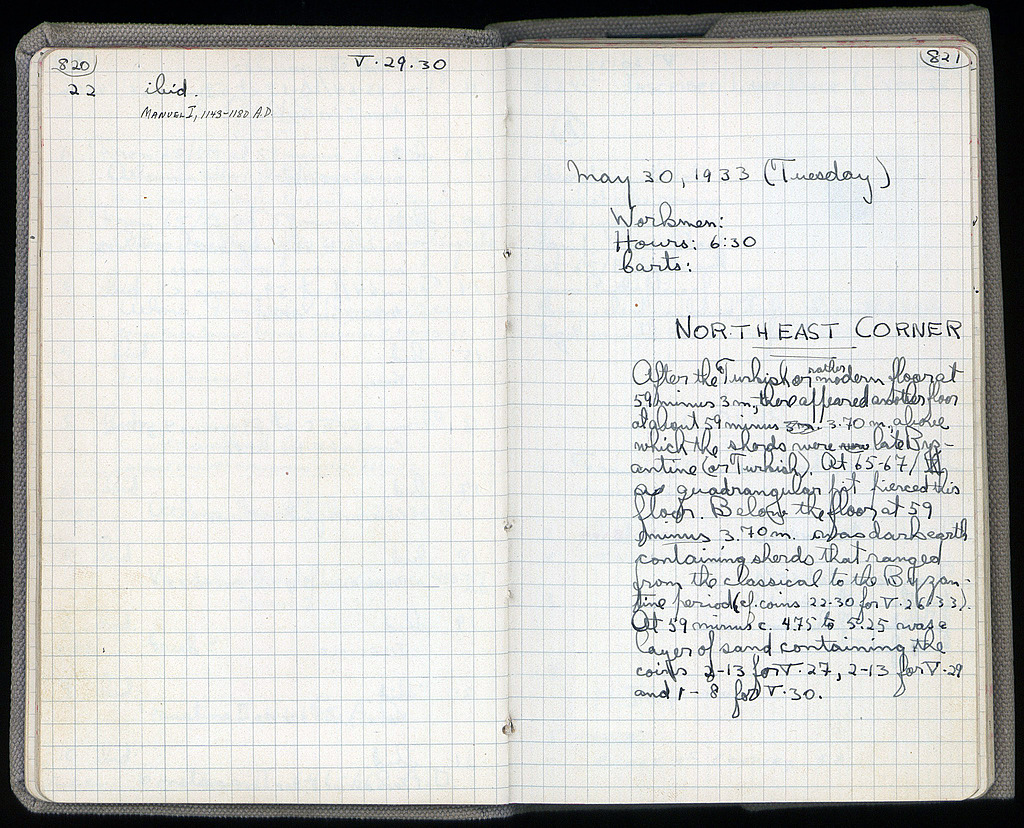 820
V.29.30
22 ibid.
MANUEL I, 1143-1180 A.D.
821
May 30, 1933 (Tuesday)
Workmen:
Hours: 6:30
Carts:
NORTHEAST CORNER
After the Turkish or rather modern floor at
59 minus 3 m, there appeared another floor
at about 59 minus 3.70 m, above
which the sherds were late Byz-
antine (or Turkish). At 65-67/
a quadrangular pit pierced this
floor. Below the floor at 59
minus 3.70 m. was dark earth
containing sherds that ranged
from the classical to the Byzan-
tine period (cf. coins 22-30 for V.26.33).
At 59 minus c. 4.75 to 5.25 was a
layer of sand containing the
coins 2-13 for V.27, 2-13 for V.29
and 1-8 for V.30.